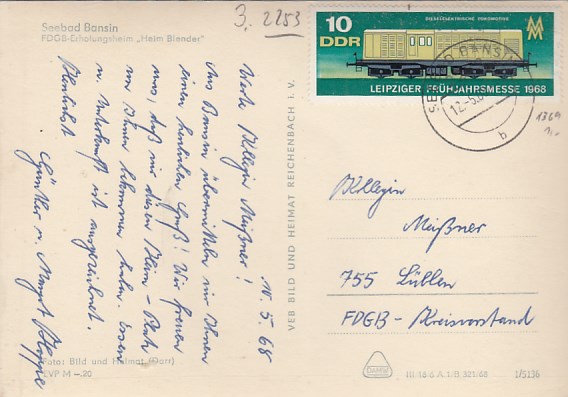 Seebad Bansin
FDGB-Erholungsheim „Heim Blender"
3. 2253
10
DDR
DIESELELEKTRISCHE LOKOMOTIVE
MM
LEIPZIGER FRÜHJAHRSMESSE 1968
SEEBAD BANSIN
12.-5.6
b
1369
10. 5. 68
Werte Kollegin Meißner!
Aus Bansin übermitteln wir Ihnen
einen herzlichen Gruß! Wir freuen
uns, daß wir diesen Platz
von Ihnen bekommen haben. Essen
u. Unterkunft ist ausgezeichnet.
Günther u. Margot
VEB BILD UND HEIMAT REICHENBACH i. V.
Kollegin
Meißner
755 Lübben
FDGB-Kreisvorstand
Foto: Bild und Heimat (Darr)
EVP M -.20
III/18/6 A 1/B 321/68
1/5136